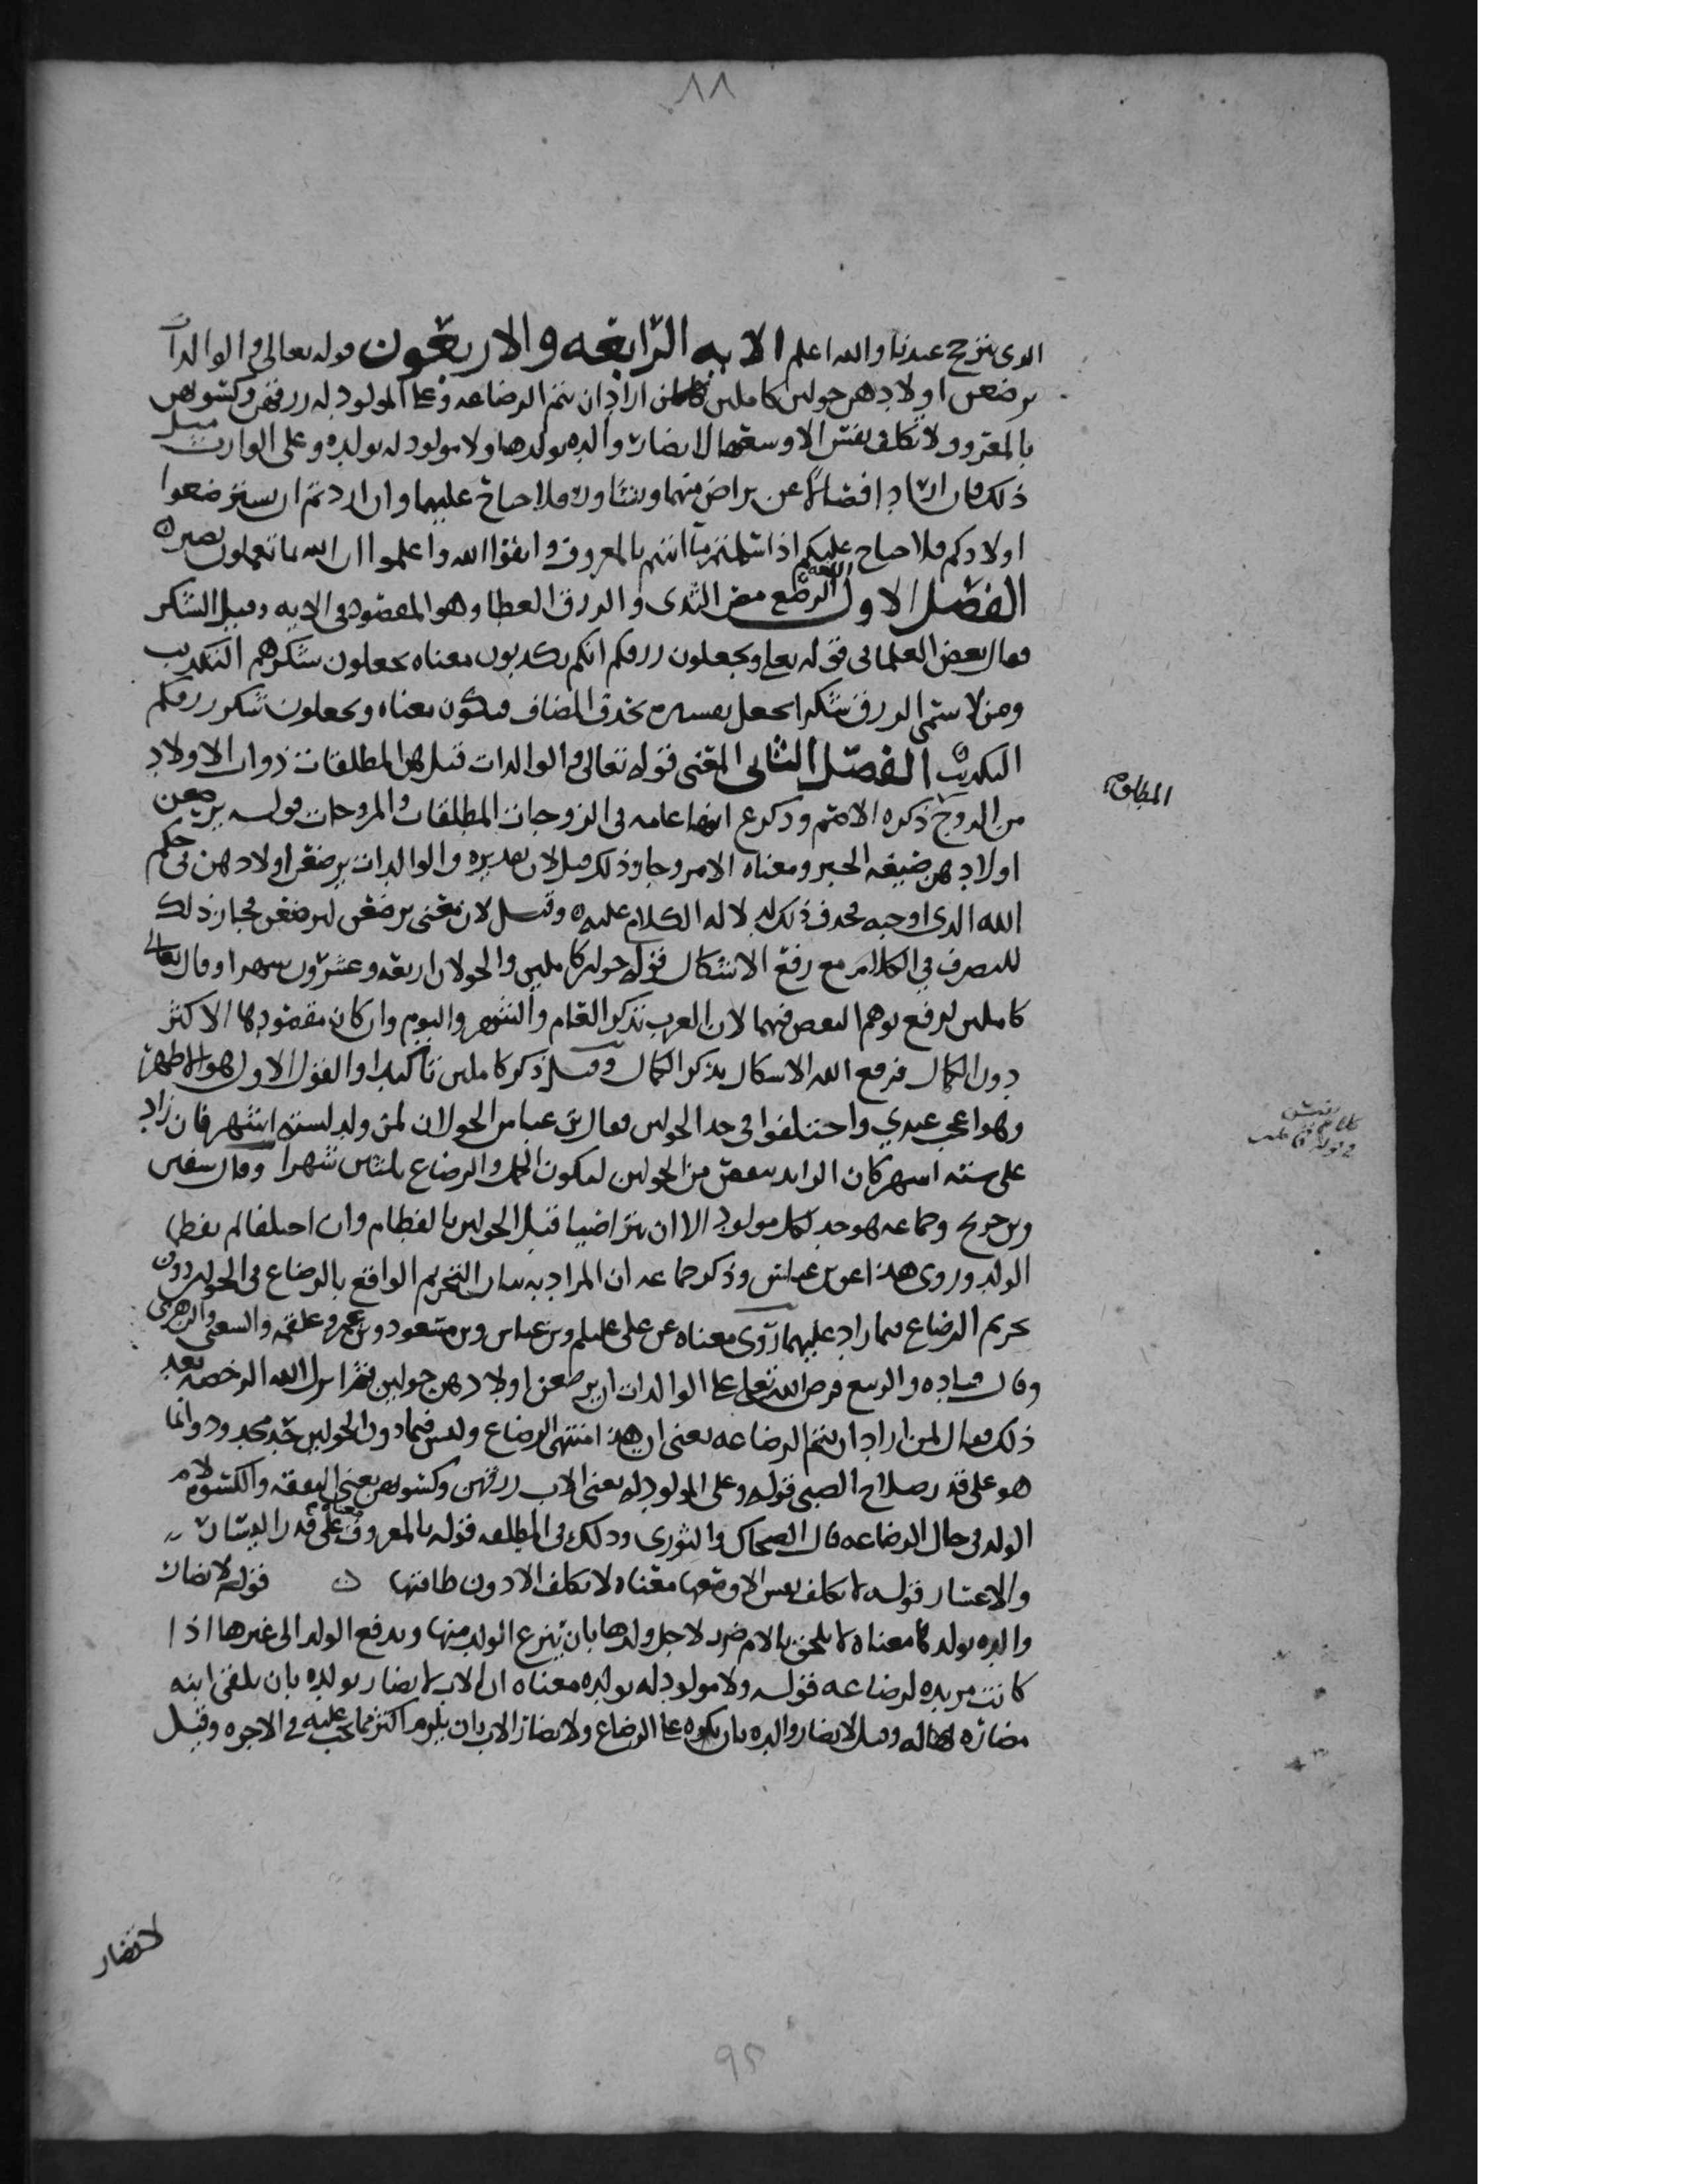 ٨٨
الذي يترجح عندنا والله اعلم الايه الرابعه والاربعون قوله تعالى والوالدات
يرضعن اولادهن حولين كاملين لمن اراد ان يتم الرضاعه وعلى المولود له رزقهن وكسوتهن
بالمعروف لا تكلف نفس الا وسعها لا تضار والده بولدها ولا مولود له بولده وعلى الوارث مثل
ذلك فان ارادا فصالا عن تراض منهما وتشاور فلا جناح عليهما وان اردتم ان تسترضعوا
اولادكم فلا جناح عليكم اذا سلمتم ما اتيتم بالمعروف واتقوا الله واعلموا ان الله بما تعملون بصير ٥
الفصل الاول اللغه الرضع مص الثدي والرزق العطا وهو المقصود في الايه وقيل الشكر
فقال بعض العلما في قوله تعلى وتجعلون رزقكم انكم تكذبون معناه تجعلون شكرهم التكذيب
ومن لا يسمي الرزق شكرا يجعل تفسيره بحذف المضاف فيكون معناه وتجعلون شكر رزقكم
التكذيب ٥ الفصل الثاني المعنى قوله تعالى والوالدات قيل هن المطلقات ذوات الاولاد
من الزوج ذكره الاصم وذكر ع انها عامه في الزوجات المطلقات والمزوجات قوله يرضعن
اولادهن صيغه الخبر ومعناه الامر وجاز ذلك قيل لان تقديره والوالدات يرضعن اولادهن في حكم
الله الذي اوجبه فحذف ذلك لدلاله الكلام عليه ٥ وقيل لان معنى يرضعن ليرضعن فجاز ذلك
للتصرف في الكلام مع رفع الاشكال قوله حولين كاملين والحولان اربعه وعشرون شهرا وقال تعالى
كاملين لرفع توهم البعض فيهما لان العرب تذكر العام والشهر واليوم وان كان مقصودها الاكثر
دون الكمال فرفع الله الاشكال بذكر الكمال وقيل ذكر كاملين تاكيدا والقول الاول هو الاظهر
وهو اعجب عندي واختلفوا في حد الحولين فقال بن عباس الحولان لمن ولد لسته اشهر فان زاد
على سته اشهر كان الزايد ينقص من الحولين ليكون الحمل والرضاع ثلثين شهرا وقال سفين
وبن جريج وجماعه هو حد لكل مولود الا ان يتراضيا قبل الحولين بالفطام وان اختلفا لم يفطما
الولد وروى هذا عن بن عباس وذكر جماعه ان المراد به بيان التحريم الواقع بالرضاع في الحولين دون
تحريم الرضاع فيما زاد عليهما روى معناه عن علي عليلم وبن عباس وبن مسعود وبن عمر وعلقمه والشعبي والزهري
وقال قتاده والربيع فرض الله تعلى على الوالدات ان يرضعن اولادهن حولين ثم انزل الله الرخصه بعد
ذلك فقال لمن اراد ان يتم الرضاعه يعني ان هذا منتهى الرضاع وليس فيما دون الحولين حد محدود وانما
هو على قدر صلاح الصبي قوله وعلى المولود له يعني الاب رزقهن وكسوتهن يعني النفقه والكسوه لام
الولد في حال الرضاعه قال الضحاك والثوري وذلك في المطلقه قوله بالمعروف معناه على قدر اليسار
والاعسار قوله لا تكلف نفس الا وسعها معناه لا تكلف الا دون طاقتها ٥ قوله لا تضار
والده بولدها معناه لا يلحق بالام ضرر لاجل ولدها بان ينزع الولد منها ويدفع الولد الى غيرها اذا
كانت مريده لرضاعه قوله ولا مولود له بولده معناه ان الاب لا يضار بولده بان يلقى ابنه
مضاره له وقيل لا تضار والده بان تكره على الرضاع ولا يضار الاب بان يلزم اكثر مما يجب عليه في الاجره وقيل
لا تضار